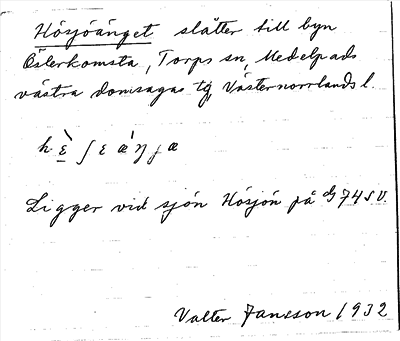 Hösjöänget slåtter till byn
Österkomsta, Torps sn, Medelpads
västra domsagas tg, Västernorrlands l.
h ɛ̀ ʃ ɛ æ̍ ŋ j æ
Ligger vid sjön Hösjön på 74 SV.
Valter Jansson 1932